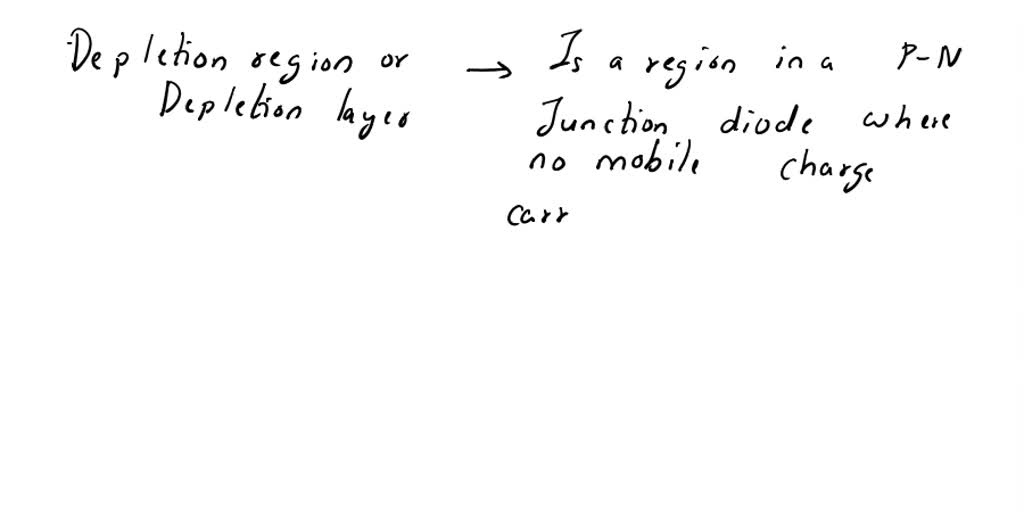 Depletion region or → Is a region in a P-N
Depletion layer Junction diode where
no mobile charge
carr